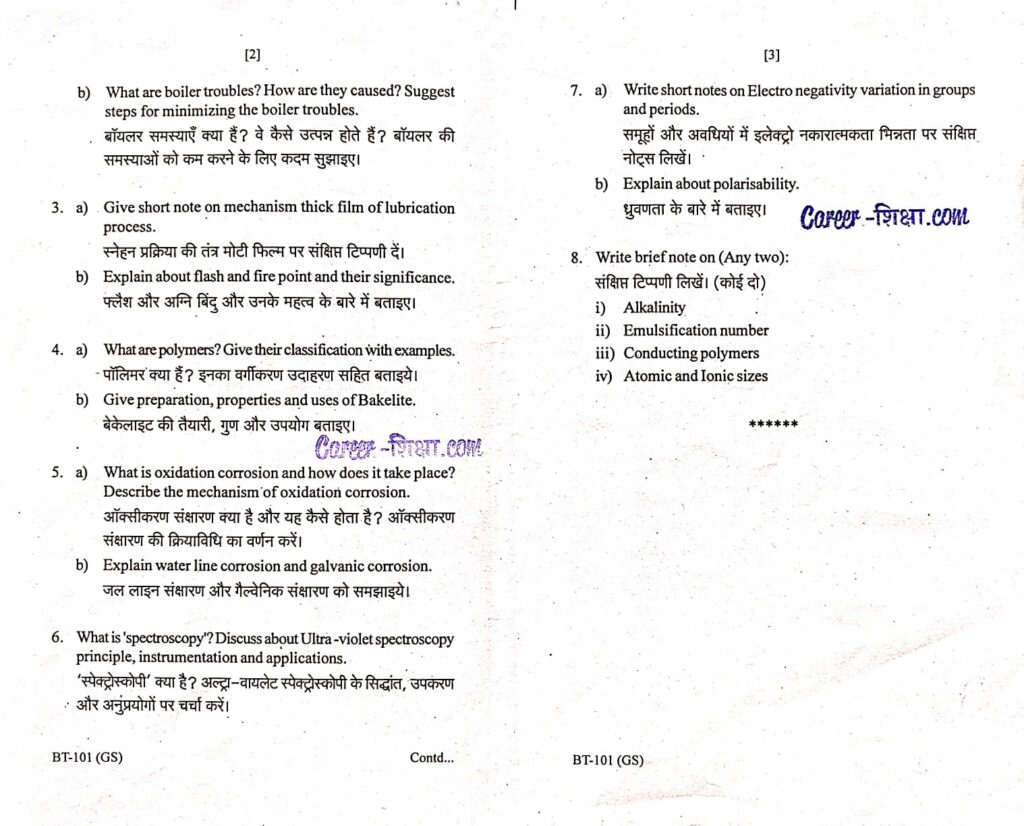 [2]
b) What are boiler troubles? How are they caused? Suggest
steps for minimizing the boiler troubles.
बॉयलर समस्याएँ क्या हैं? वे कैसे उत्पन्न होते हैं? बॉयलर की
समस्याओं को कम करने के लिए कदम सुझाइए।
3. a) Give short note on mechanism thick film of lubrication
process.
स्नेहन प्रक्रिया की तंत्र मोटी फिल्म पर संक्षिप्त टिप्पणी दें।
b) Explain about flash and fire point and their significance.
फ्लैश और अग्नि बिंदु और उनके महत्व के बारे में बताइए।
4. a) What are polymers? Give their classification with examples.
पॉलिमर क्या हैं? इनका वर्गीकरण उदाहरण सहित बताइये।
b) Give preparation, properties and uses of Bakelite.
बेकेलाइट की तैयारी, गुण और उपयोग बताइए।
Career-शिक्षा.com
5. a) What is oxidation corrosion and how does it take place?
Describe the mechanism of oxidation corrosion.
ऑक्सीकरण संक्षारण क्या है और यह कैसे होता है? ऑक्सीकरण
संक्षारण की क्रियाविधि का वर्णन करें।
b) Explain water line corrosion and galvanic corrosion.
जल लाइन संक्षारण और गैल्वेनिक संक्षारण को समझाइये।
6. What is 'spectroscopy'? Discuss about Ultra-violet spectroscopy
principle, instrumentation and applications.
'स्पेक्ट्रोस्कोपी' क्या है? अल्ट्रा-वायलेट स्पेक्ट्रोस्कोपी के सिद्धांत, उपकरण
और अनुंप्रयोगों पर चर्चा करें।
BT-101 (GS) Contd...
[3]
7. a) Write short notes on Electro negativity variation in groups
and periods.
समूहों और अवधियों में इलेक्ट्रो नकारात्मकता भिन्नता पर संक्षिप्त
नोट्स लिखें।
b) Explain about polarisability.
ध्रुवणता के बारे में बताइए।
Career-शिक्षा.com
8. Write brief note on (Any two):
संक्षिप्त टिप्पणी लिखें। (कोई दो)
i) Alkalinity
ii) Emulsification number
iii) Conducting polymers
iv) Atomic and Ionic sizes
******
BT-101 (GS)